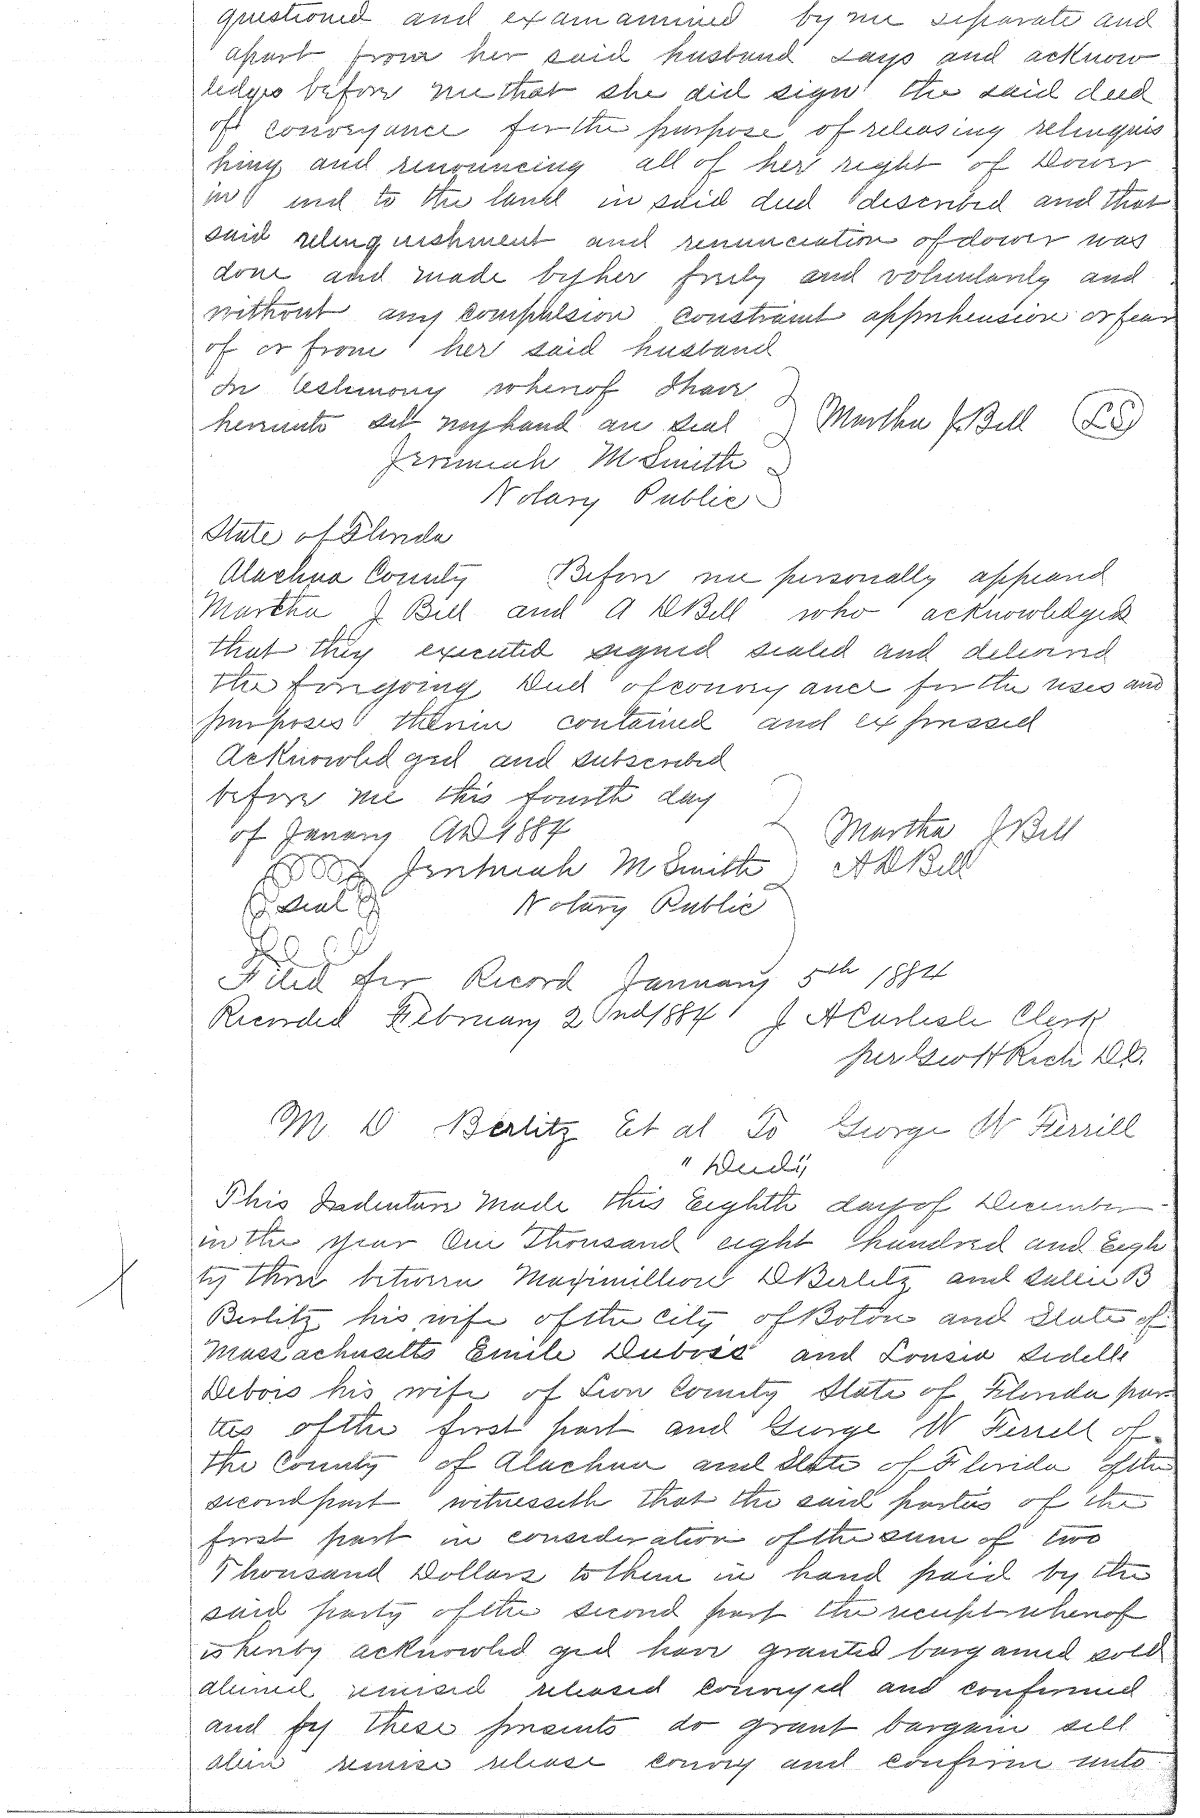 questioned and examamined by me separate and
apart from her said husband says and acknow
ledges before me that she did sign the said deed
of conveyance for the purpose of releasing relinquis
hing and renouncing all of her right of Dower
in and to the land in said deed described and that
said relinquishment and renunciation of dower was
done and made by her freely and voluntarily and
without any compulsion constraint apprehension or fear
of or from her said husband
In testimony whereof I have
hereunto set my hand an seal Martha J. Bill LS
Jeremiah M Smith
Notary Public
State of Florida
Alachua County Before me personally appeard
Martha J Bill and A D Bill who acknowledged
that they executed signed sealed and deliverd
the foregoing Deed of conveyance for the uses and
purposes therein contained and expressed
Acknowledged and subscribed
before me this fourth day
of January AD 1884 Martha J Bill
Jeremiah M Smith A D Bill
seal Notary Public
Filed for Record January 5th 1884
Recorded February 2nd 1884 J A Carlisle Clerk
per Geo H Rich D.C.
M D Berlitz Et al To George W Ferrill
"Deed"
This Indenture Made this Eighth day of December
in the year One Thousand eight hundred and Eigh
ty three between Maximillion D Berlitz and Sallie B
Berlitz his wife of the City of Boton and State of
Massachusetts Emile Dubois and Lousia Sedelle
Debois his wife of Leon County State of Florida par
ties of the first part and George W Ferrell of
the County of Alachua and State of Florida of the
second part witnesseth that the said parties of the
first part in consideration of the sum of two
Thousand Dollars to them in hand paid by the
said party of the second part the receipt whereof
is hereby acknowledged have granted bargained sold
aliened remised released conveyed and confirmed
and by these presents do grant bargain sell
alien remise release convey and confirm unto